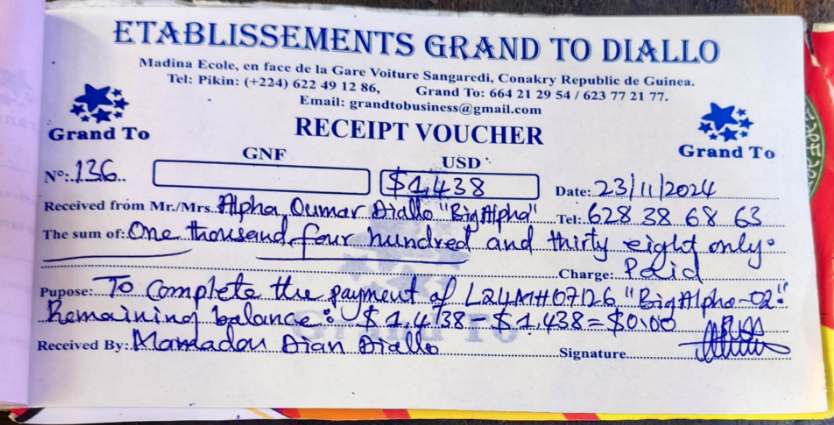 ETABLISSEMENTS GRAND TO DIALLO
Madina Ecole, en face de la Gare Voiture Sangaredi, Conakry Republic de Guinea.
Tel: Pikin: (+224) 622 49 12 86, Grand To: 664 21 29 54 / 623 77 21 77.
Email: grandtobusiness@gmail.com
Grand To
RECEIPT VOUCHER
Grand To
GNF USD
N°:.136 $1,438 Date: 23/11/2024
Received from Mr./Mrs. Alpha Oumar Diallo "BigAlpha" Tel: 628 38 68 63
The sum of: One thousand four hundred and thirty eight only.
Charge: Paid
Pupose: To Complete the payment of L24MH07126 "BigAlpha-02."
Remaining balance: $1,438 - $1,438 = $0.00
Received By: Mamadou Dian Diallo Signature